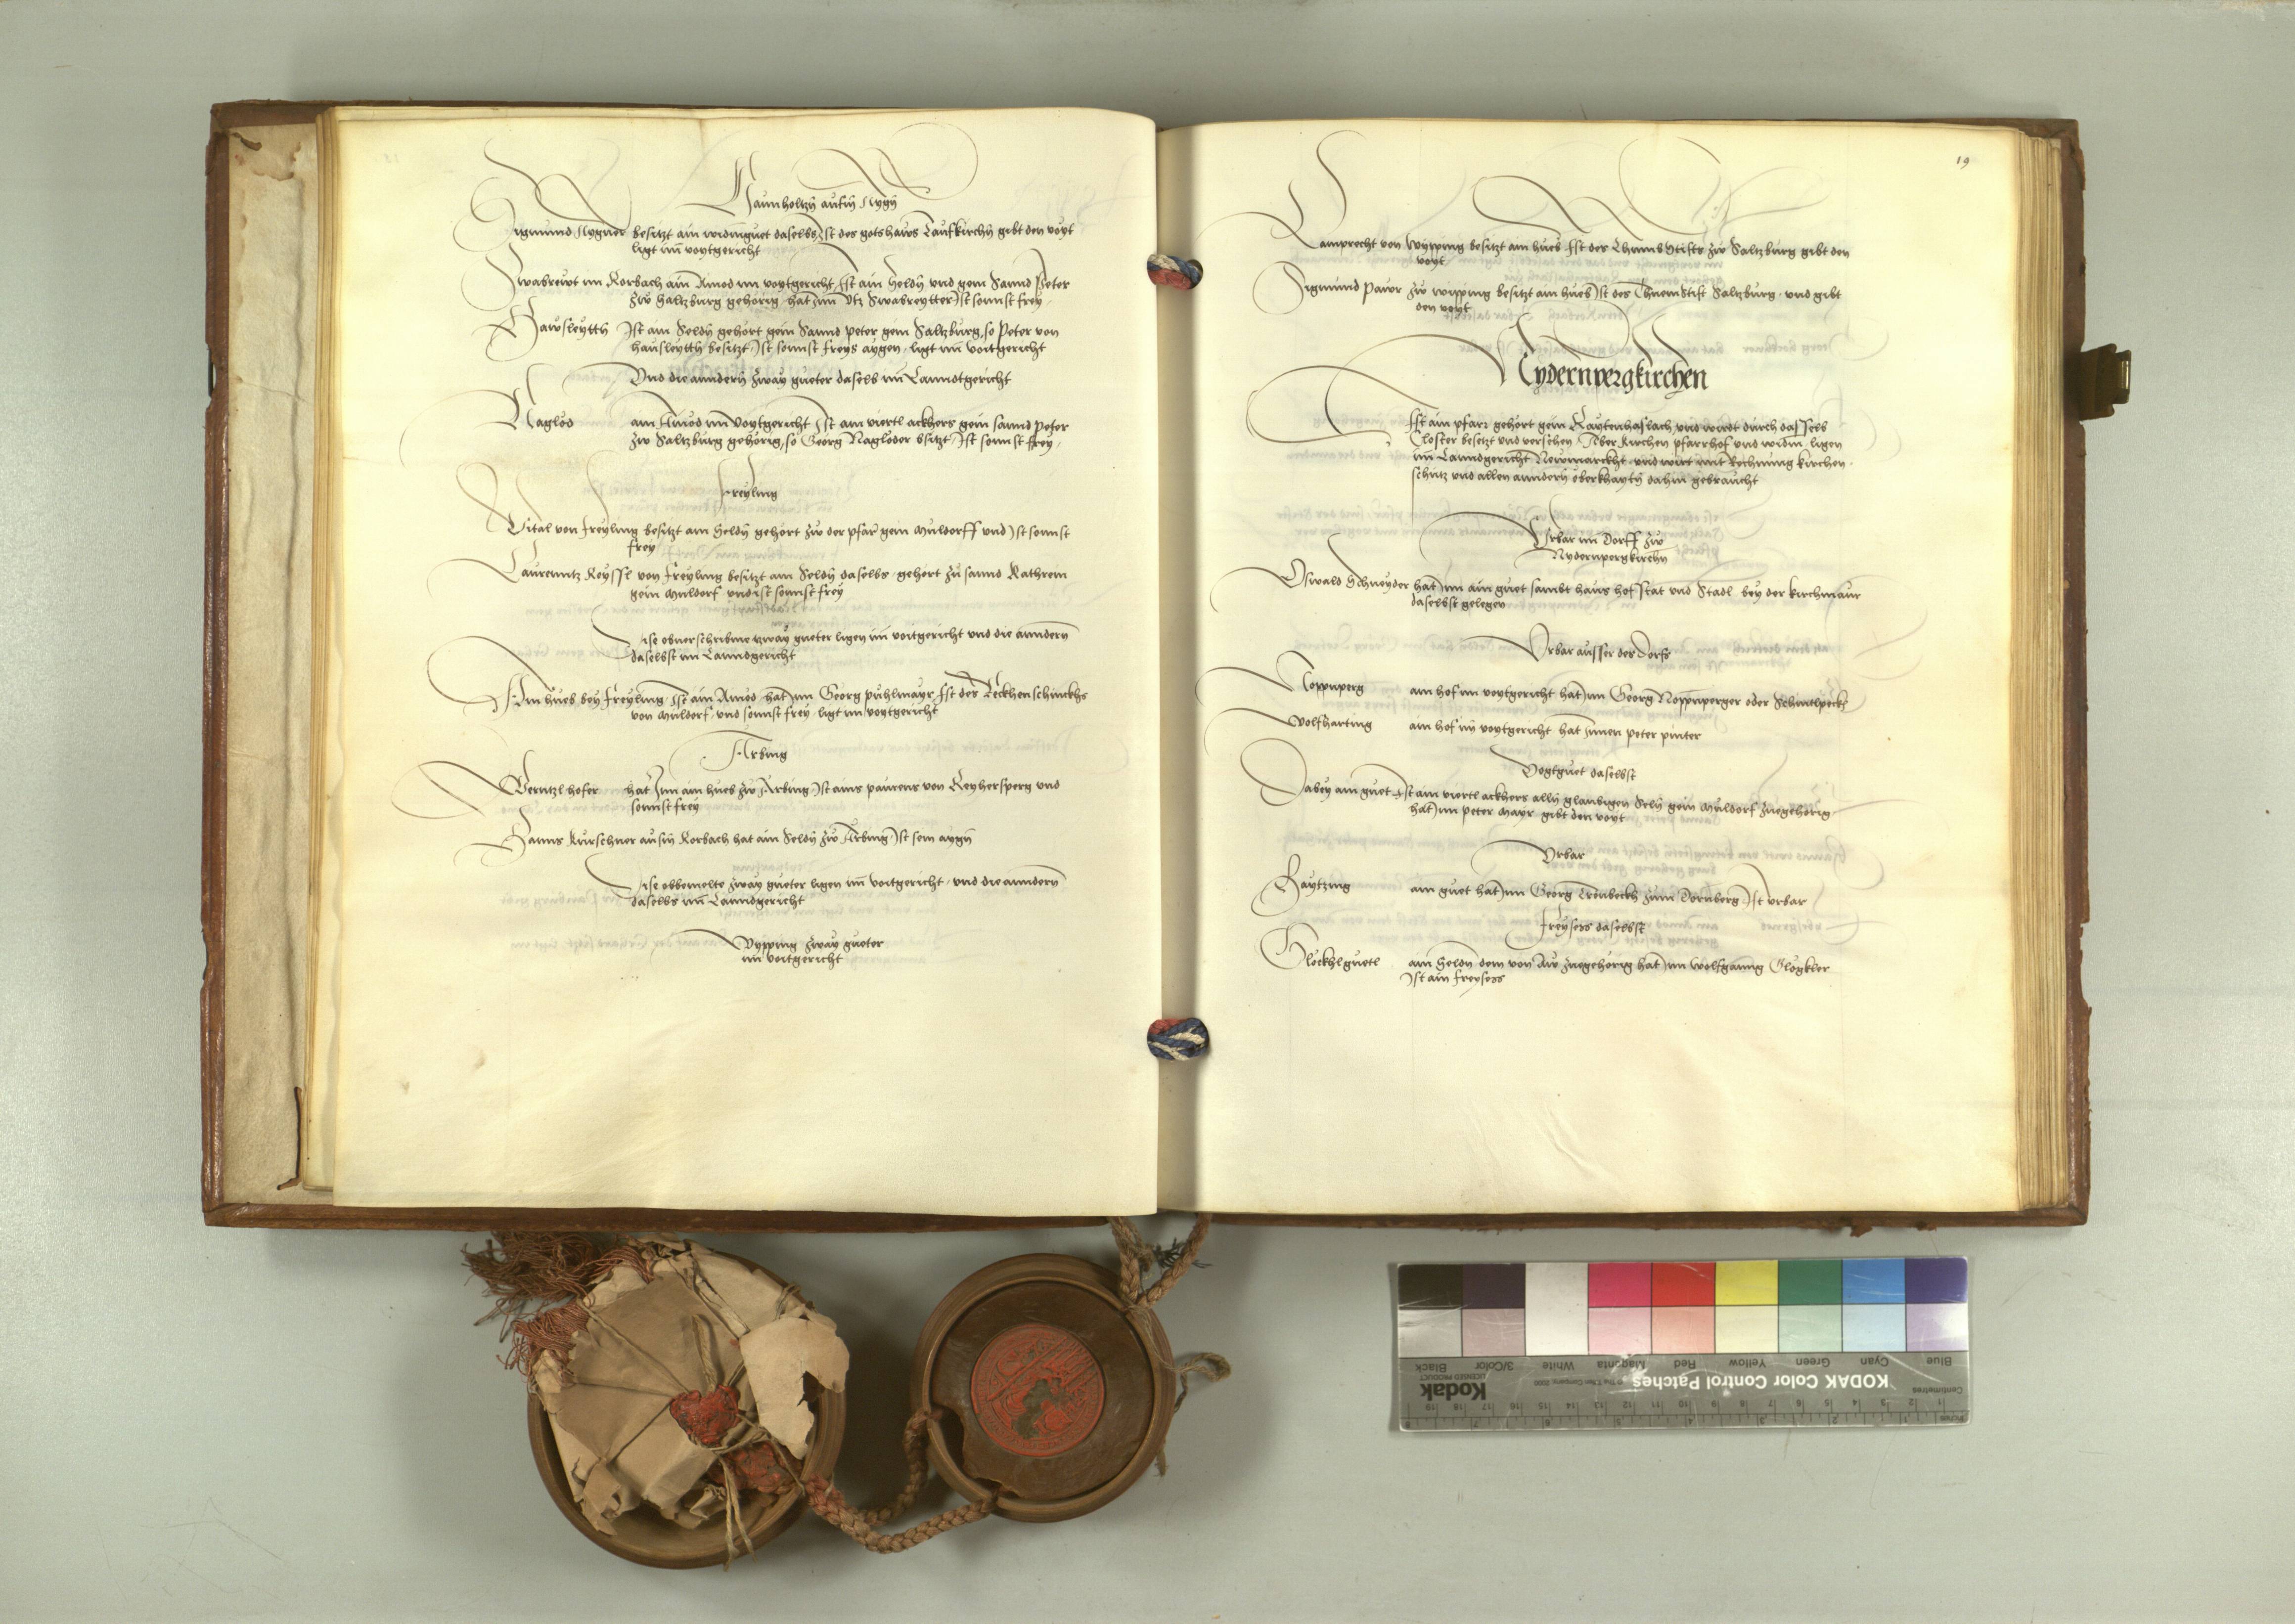 Haunholtzn̄ aufm̄ Aygn̄
Sigmund Aygner besitzt ain widmguet daselbs Ist des gotshaws Taufkirchn̄ gibt den voyt
ligt im̄ voytgericht
Swabrewt im Korbach ain Ainod im voytgericht Ist ain Seldn̄ und gein Sannd Peter
zw Saltzburg gehörig hat Inn Utz Swabreytter Ist sonnst frey
Hawsleytth Ist ain Seldn̄ gehört gein Sannd peter gein Saltzburg, so Peter von
hausleytth besitzt, Ist sonnst freys aygen, ligt im̄ voitgericht
Vnd die anndern̄ zway gueter daselbs im̄ Lanndtgericht
Naglöd ain Ainod im̄ voytgericht Ist ain viertl ackhers gein sannd peter
zw Saltzburg gehörig, so Georg Naglöder bsitzt, Ist sonnst frey,
Freyling
Vital von Freyling besitzt ain Seldn̄ gehört zw der pfarr gein Muldorff und Ist sonnst
frey
Laurenntz Reyssl von Freyling besitzt ain Seldn̄ daselbs, gehört zu sannd Kathrein
gein Muldorf und ist sonnst frey
Dise obnerschribne zway gueter ligen im̄ voitgericht und die anndern̄
daselbst im Lanndgericht
Ain hueb bey Freyling, Ist ain Ainöd hat Inn Georg puhlmayr, Ist des Leckhenschinckhs
von Muldorf, und sonnst frey, ligt im voytgericht
Arbing
Berntzl hofer hat Inn ain hueb zw Arbing, Ist ains paurens von Reyhersperg und
sonnst frey
Hanns Kürschner ausm̄ Korbach hat ain Seldn̄ zw Arbing, Ist sein aygn̄
Dise obbemelte zway gueter ligen im̄ voitgericht, und die anndern̄
daselbs im̄ Lanndgericht
Wypping zway gueter
im̄ voitgericht
19
Lamprecht von Wypping besitzt ain hueb Ist des Thumbstifts zw Saltzburg gibt den
voyt
Sigmund Pawr zw wipping besitzt ain hueb Ist des Thuemstift Saltzburg, und gibt
den voyt
Nydernpergkirchen
Ist ain pfarr gehört gein Raytenhaslach, und wirdt durch dasselb
Closter besetzt und versehen, Aber kirchen pfarrhof und widm̄ ligen
im̄ Lanndgericht Newmarckht, und wirt mit Rechnung kirchen,
schutz und allen anndern̄ oberkhaytn̄ dahin gebraucht
Vrbar im Dorff zw
Nydernpergkirchn̄
Oswald Schneyder hat Inn ain guet sambt haus hofstat und Stadl, bey der kirchmaur
daselbst gelegen
Vrbar ausser des Dorfs
Noppnperg ain hof im voytgericht hat Inn Georg Noppnperger oder Schmtlpeckh
Wolfharting ain hof im̄ voytgericht hat Innen peter pinter
Vogtguet daselbst
Dabey ain guet Ist ain viertl ackhers alln̄ glaubigen Seln̄ gein Muldorf zuegehörig,
hat Inn peter Mayr gibt den voyt
Vrbar
Haytzing ain guet hat Inn Georg Trenbeckh zum Dornberg Ist vrbar
Freysess daselbst
Glöckhlguetl ain Seldn̄ dem von Aw zuegehörig hat Inn Wolfganng Glögkler
Ist ain freysess
KODAK Color Control Patches
Kodak
LICENSED PRODUCT
© The Tiffen Company, 2000
Centimetres
Inches
Blue Cyan Green Yellow Red Magenta White 3/Color Black
1 2 3 4 5 6 7 8 9 10 11 12 13 14 15 16 17 18 19